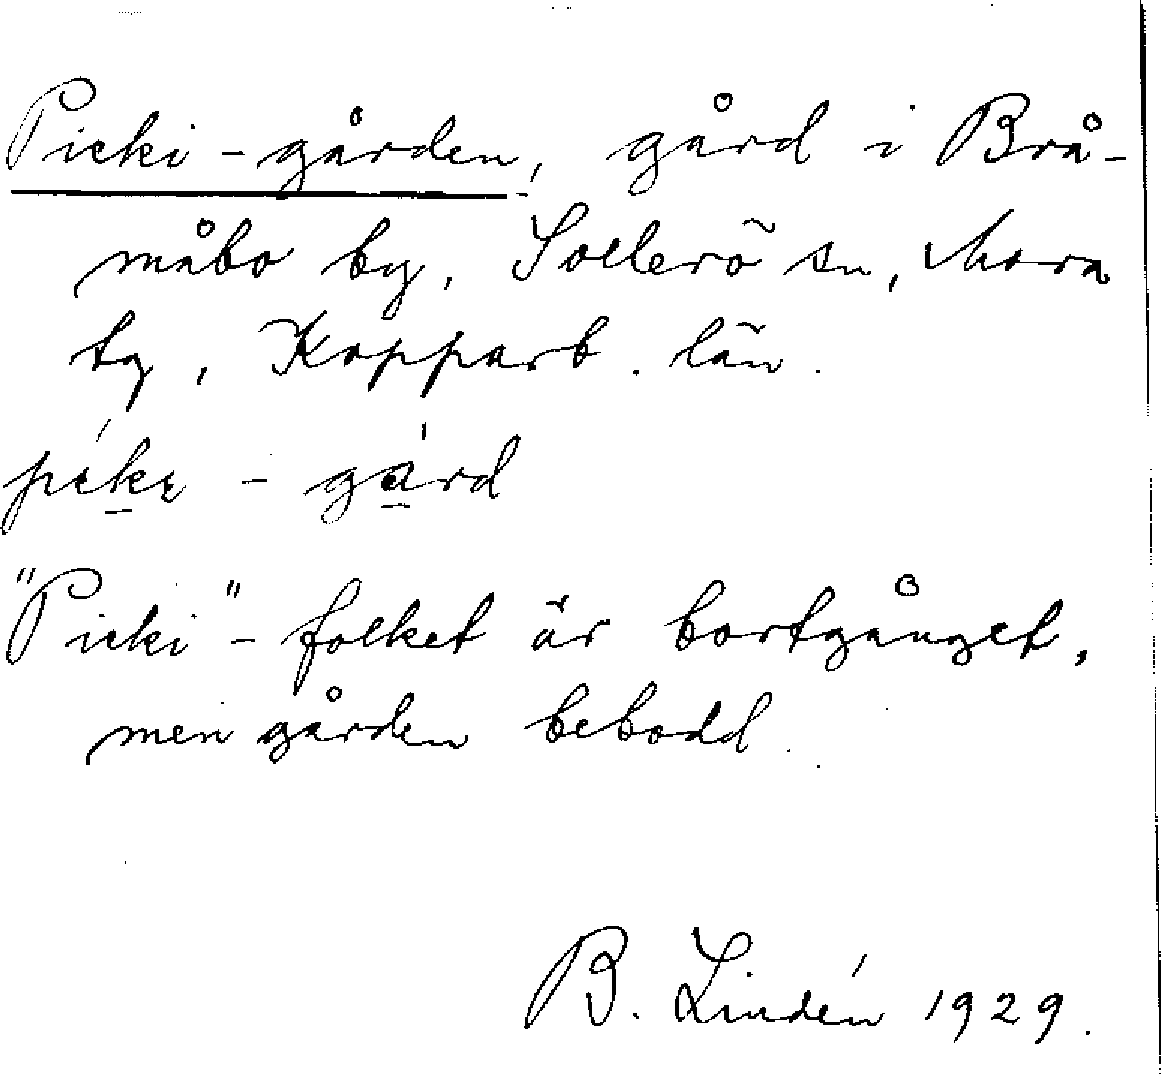 Picki-gården, gård i Brå-
måbo by, Sollerö sn, Mora
tg, Kopparb. län.
- gård
"Picki"-folket är bortgånget,
men gården bebodd.
B. Lindén 1929.